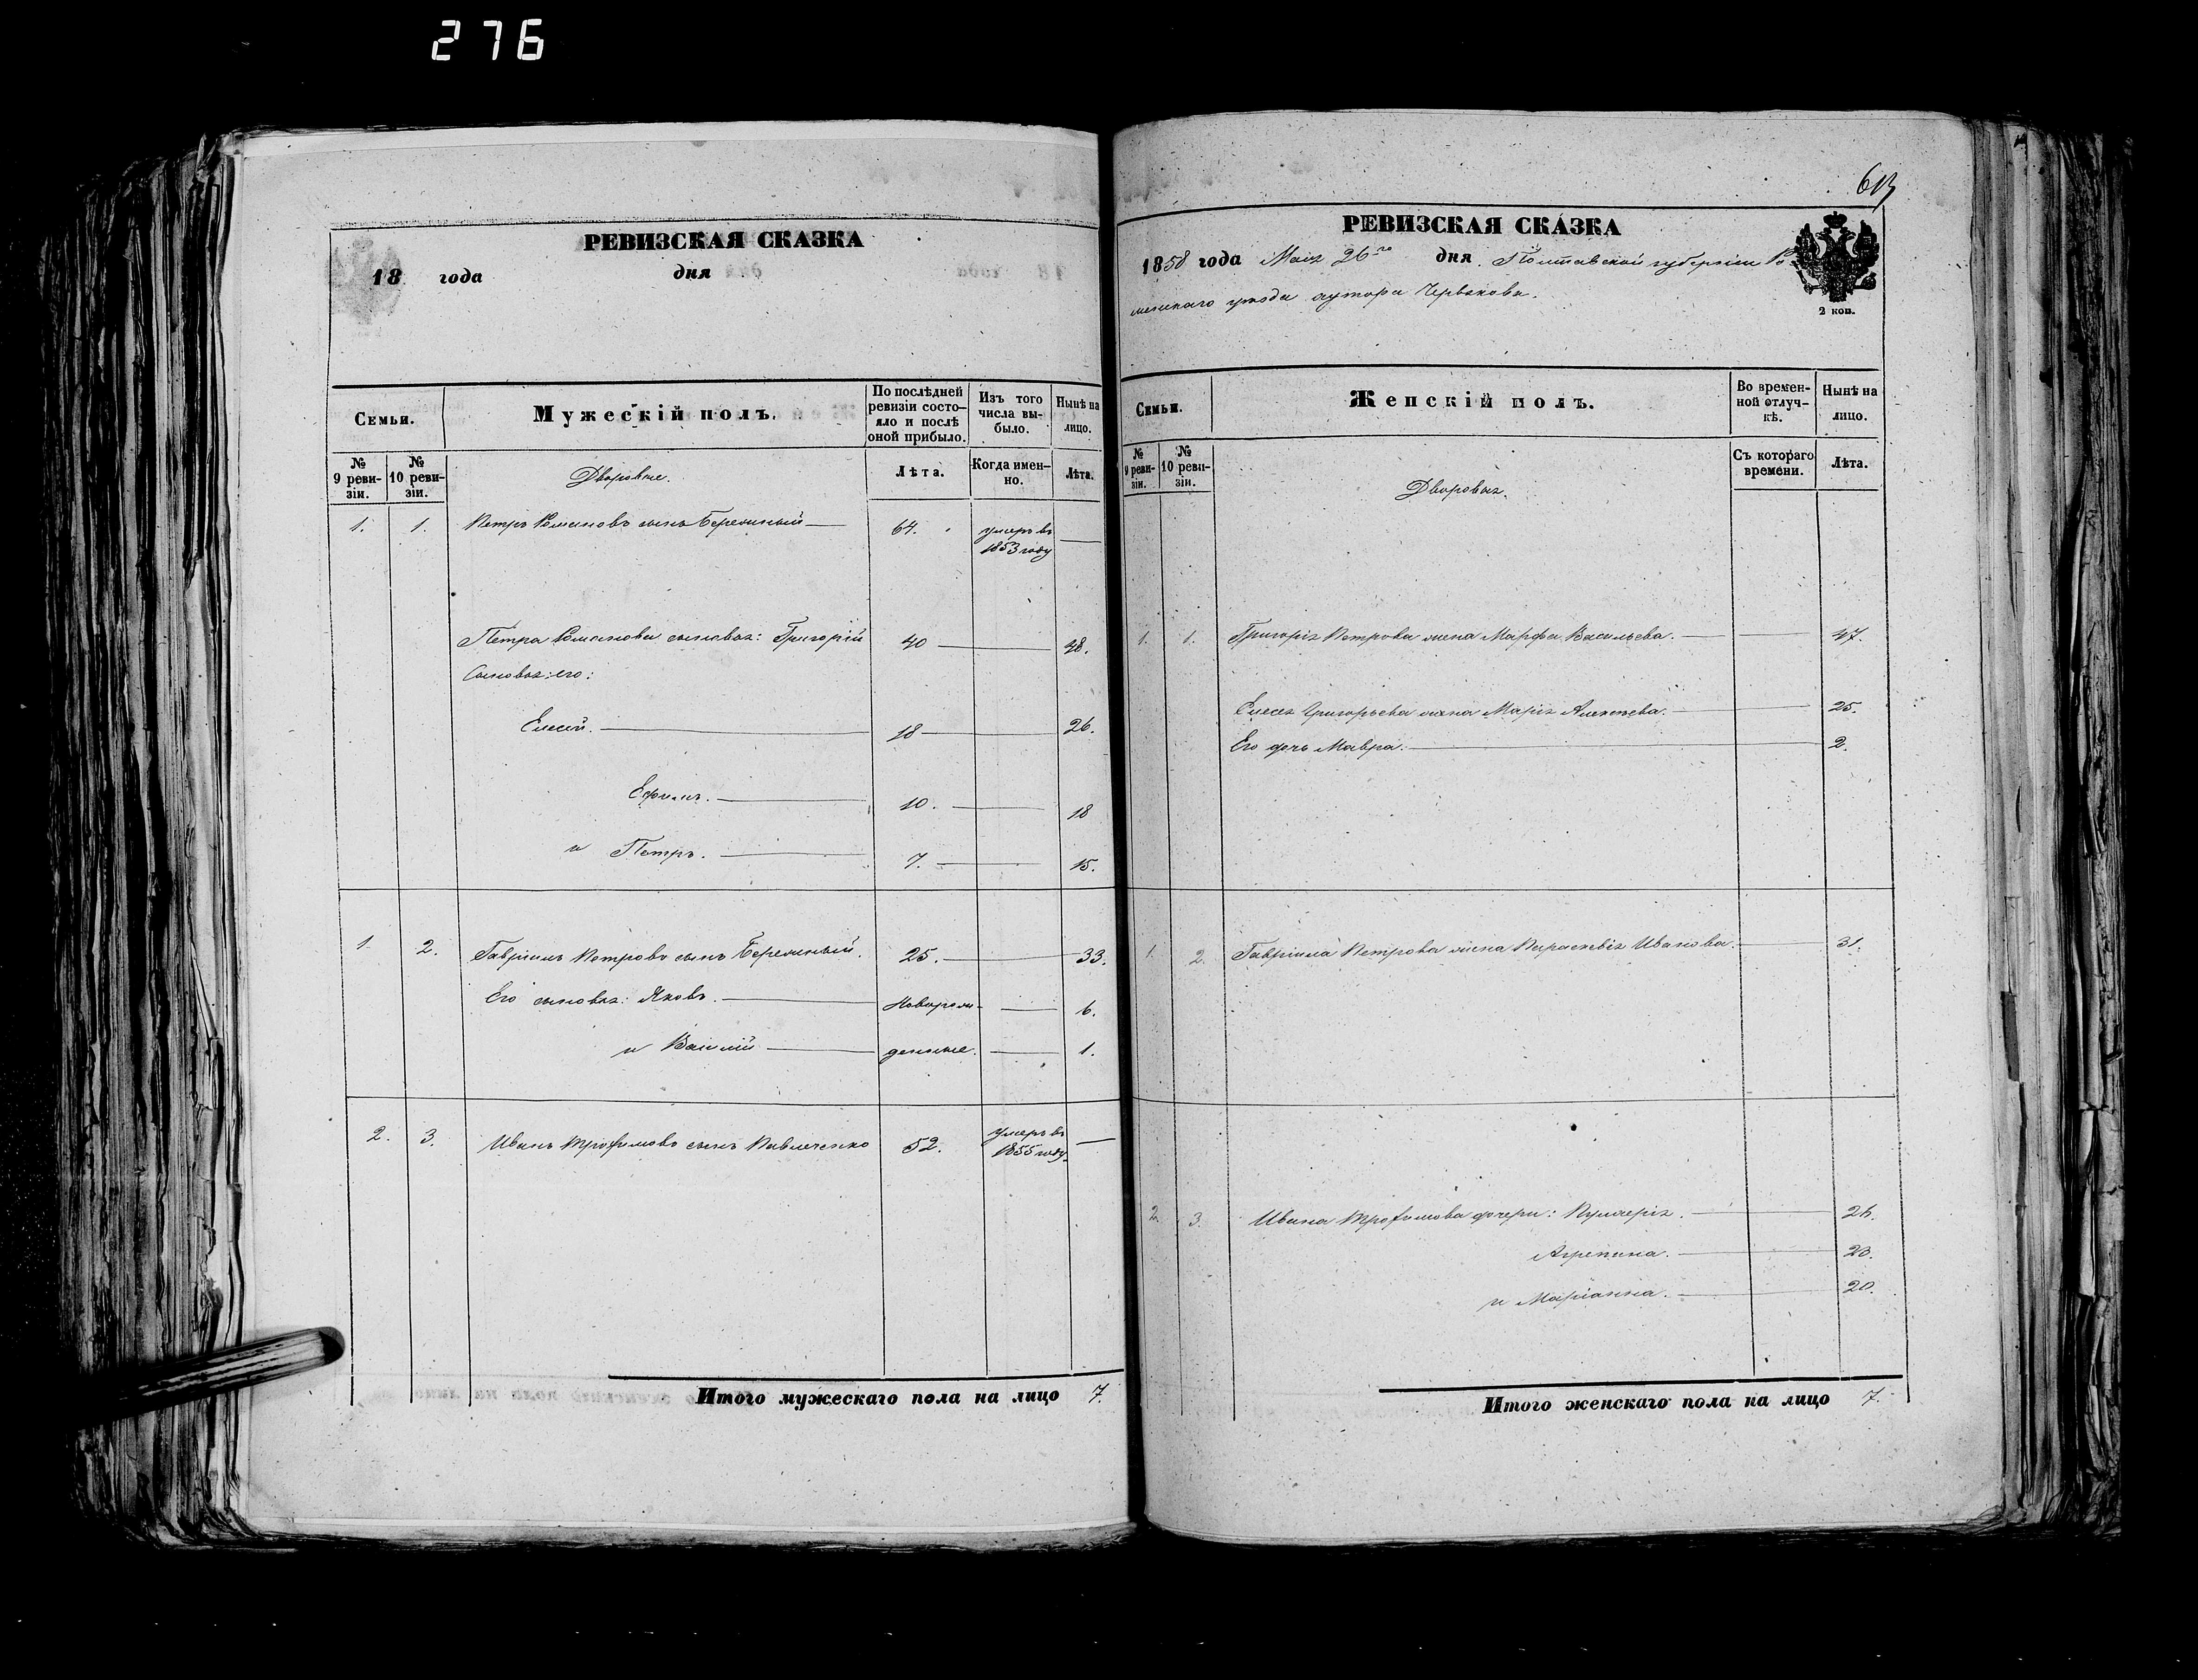 276
РЕВИЗСКАЯ СКАЗКА
18 года дня
Семьи.
Мужескій полъ.
По послѣдней ревизіи состояло и послѣ оной прибыло.
Изъ того числа выбыло.
Нынѣ на лицо.
№ 9 ревизіи.
№ 10 ревизіи.
Дворовые.
Лѣта.
Когда именно.
Лѣта.
1. 1. Петръ Романовъ сынъ Бережный 64. умеръ въ 1853 году
Петра Романова сыновья: Григорій 40 48.
Сыновья его:
Елисей. 18 26.
Ефимъ. 10. 18
и Петръ. 7. 15.
1. 2. Гавріилъ Петровъ сынъ Бережный. 25. 33.
Его сыновья: Яковъ. Новорож- 6.
и Василій денные. 1.
2. 3. Иванъ Трофимовъ сынъ Павличенко 52. умеръ въ 1855 году.
Итого мужескаго пола на лицо 7.
613
РЕВИЗСКАЯ СКАЗКА
1858 года Мая 26го дня Полтавской губерніи Ро-
менскаго уѣзда хутора Червакова.
2 коп.
Семьи.
Женскій полъ.
Во временной отлучкѣ.
Нынѣ на лицо.
№ 9 ревизіи.
№ 10 ревизіи.
Дворовыя.
Съ котораго времени.
Лѣта.
1. 1. Григорія Петрова жена Марфа Васильева. 47.
Елисея Григорьева жена Марія Алексѣева. 25.
Его дочь Мавра. 2.
1. 2. Гавріила Петрова жена Параскевія Иванова. 31.
2. 3. Ивана Трофимова дочери: Пулхерія. 26.
Агрепина. 23.
и Маріанна. 20.
Итого женскаго пола на лицо 7.